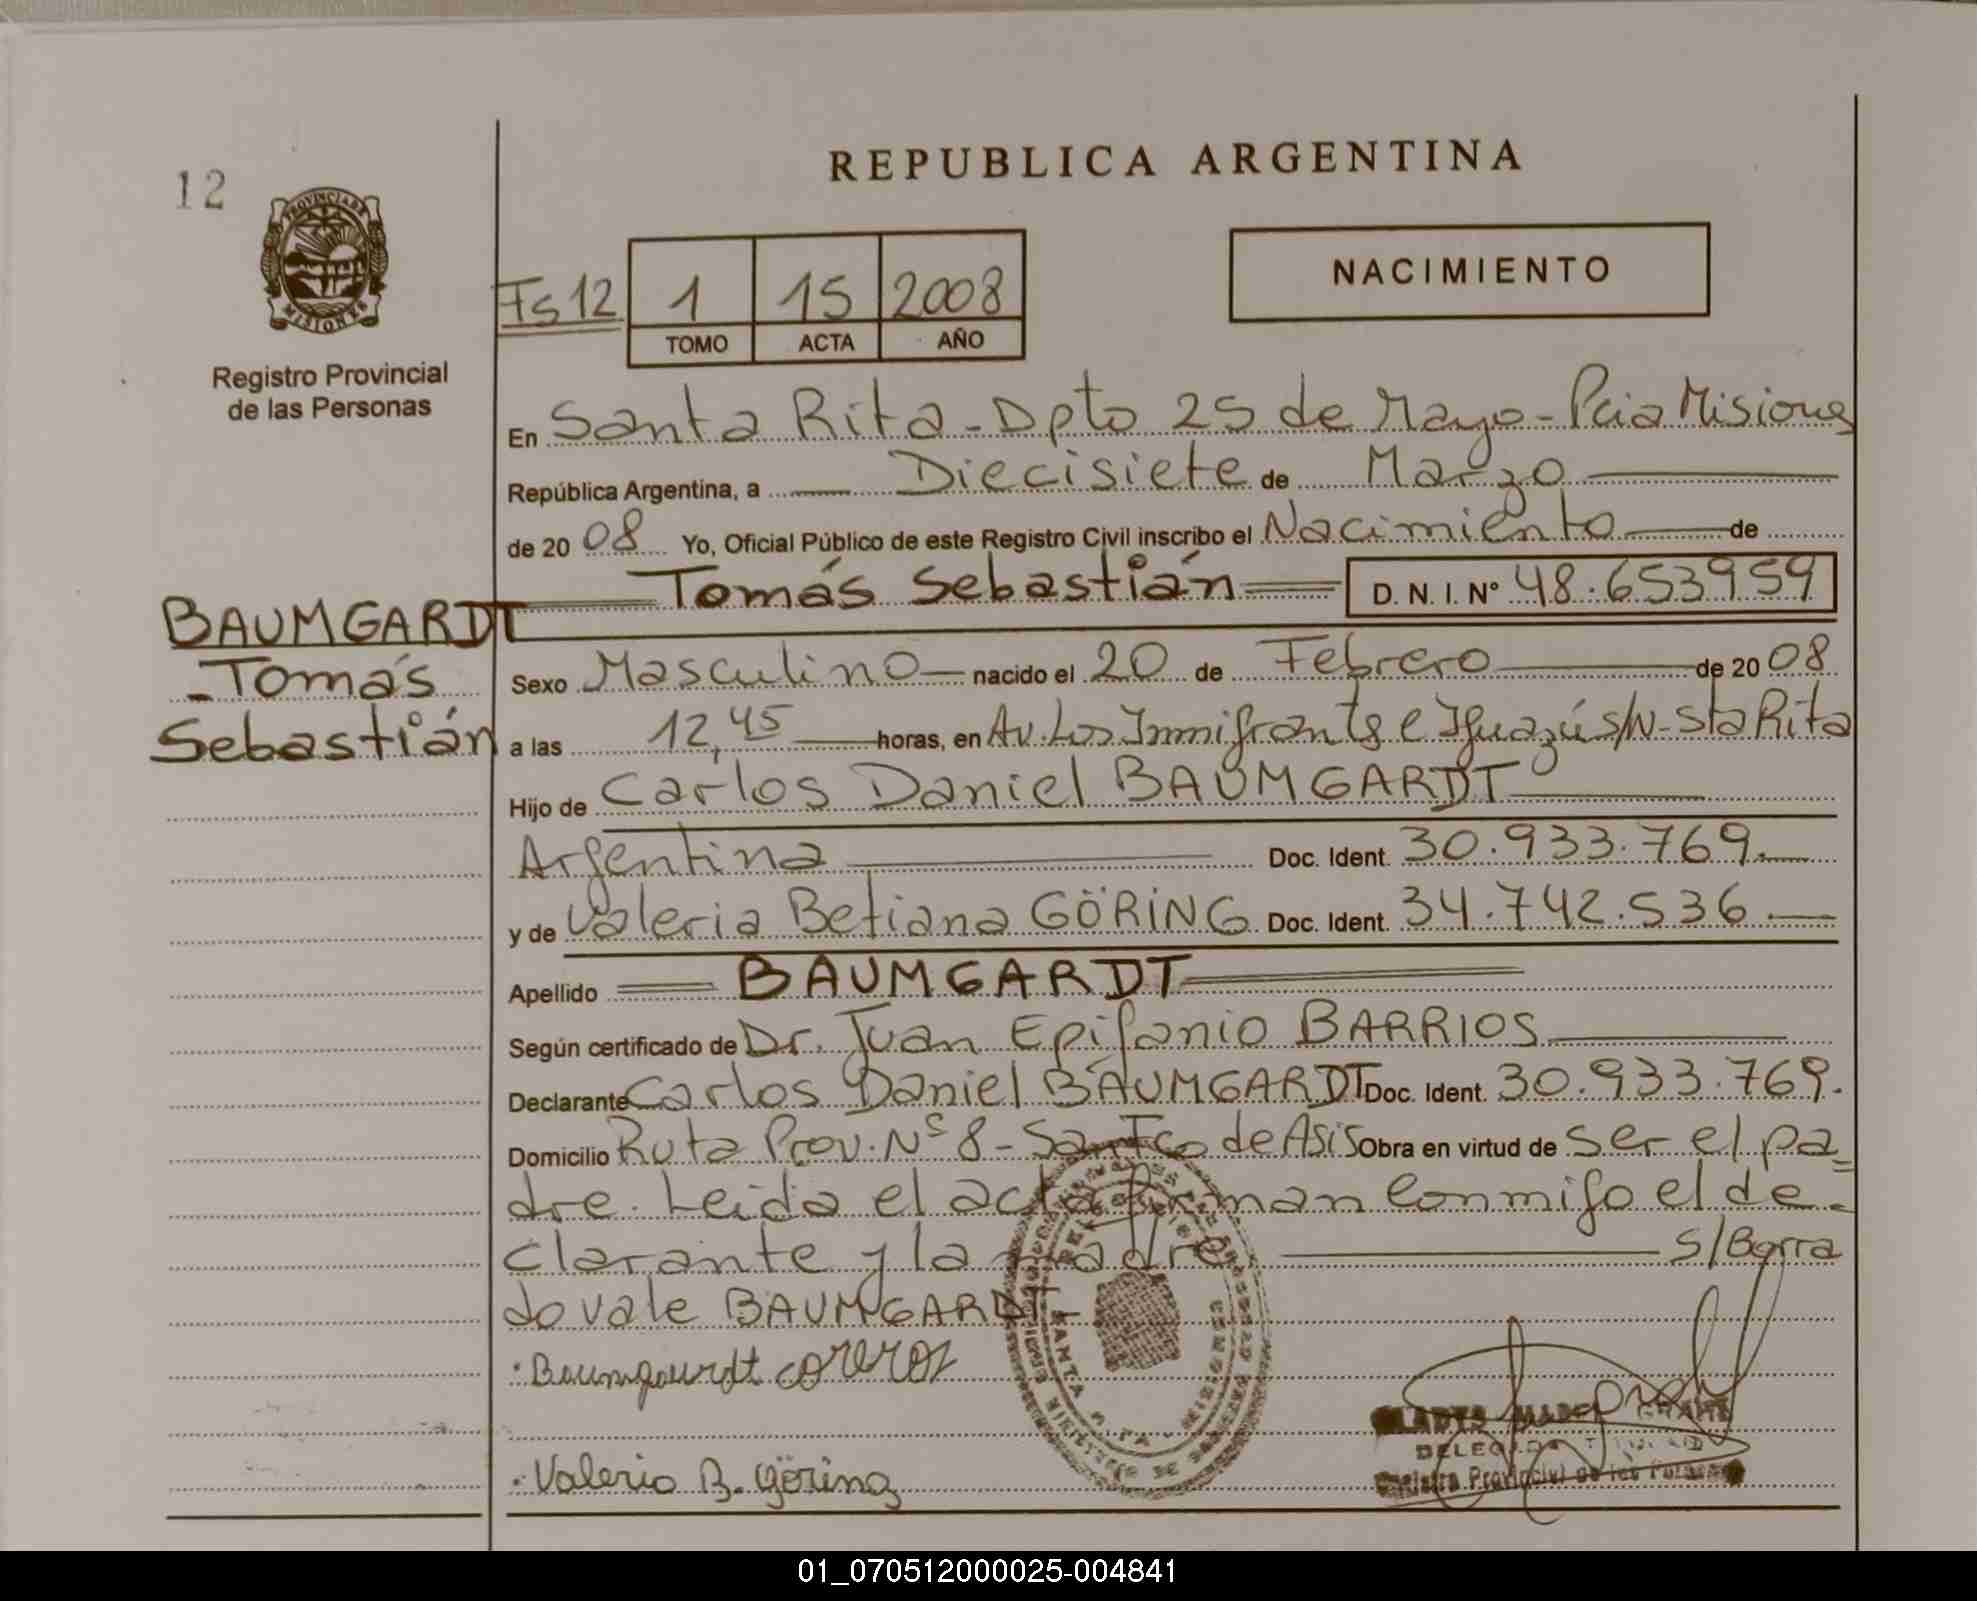 REPUBLICA ARGENTINA
12
PROVINCIA DE
MISIONES
Registro Provincial
de las Personas
Fs 12
1 15 2008
TOMO ACTA AÑO
NACIMIENTO
En Santa Rita - Dpto 25 de Mayo - Pcia Misiones
República Argentina, a Diecisiete de Marzo
de 2008 Yo, Oficial Público de este Registro Civil inscribo el Nacimiento de
Tomás Sebastián D. N. I. Nº 48.653959
BAUMGARDT
Tomás
Sebastián
Sexo Masculino nacido el 20 de Febrero de 2008
a las 12,45 horas, en Av. Los Inmigrantes e Iguazú s/N - Sta Rita
Hijo de Carlos Daniel BAUMGARDT
Argentina Doc. Ident. 30.933.769.
y de Valeria Betiana GÖRING Doc. Ident. 34.742.536
Apellido BAUMGARDT
Según certificado de Dr. Juan Epifanio BARRIOS
Declarante Carlos Daniel BAUMGARDT Doc. Ident. 30.933.769.
Domicilio Ruta Prov. Nº 8 - San Fco de Asis Obra en virtud de ser el pa=
dre. Leida el acta firman conmigo el de-
clarante y la madre S/Borra
do vale BAUMGARDT
Baumgardt
Valeria B. Göring
SANTA RITA
GLADYS
Registro Provincial de las Personas
01_070512000025-004841